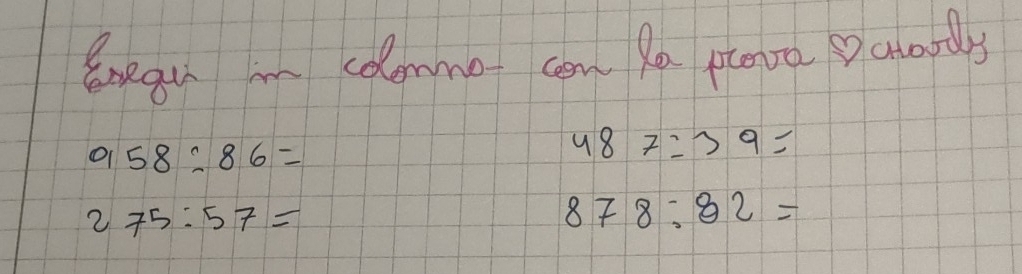 Esegui in colonna con la prova ♡
958:86=
487:39=
275:57=
878:82=